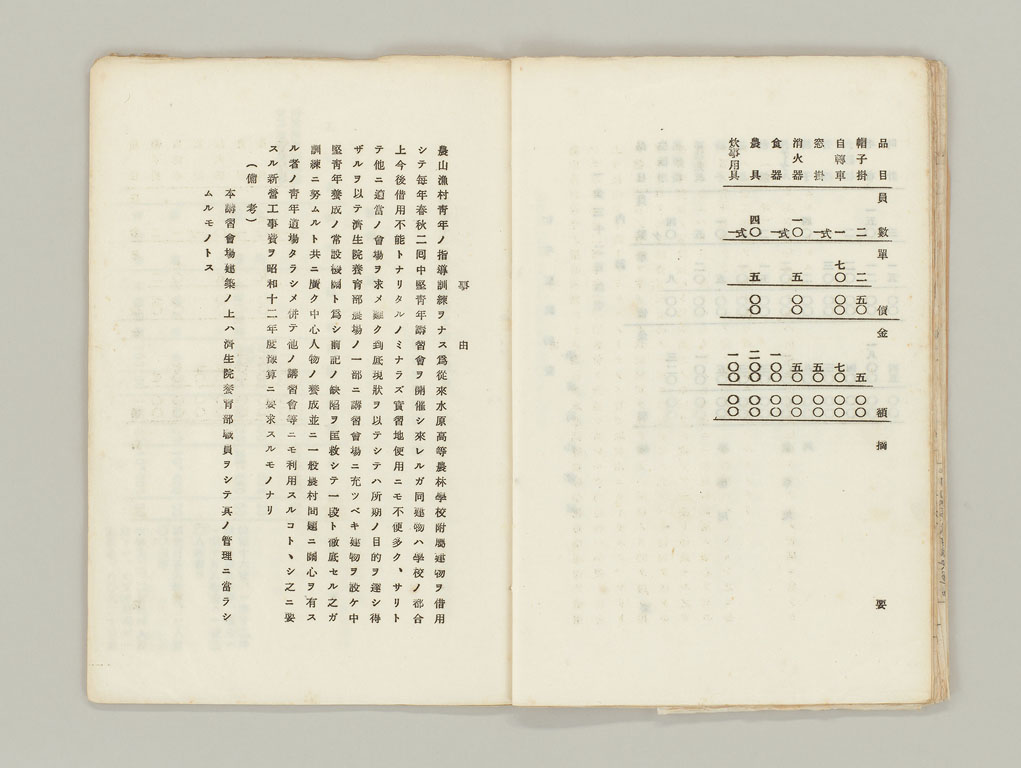 品目 員數 單價 金額 摘要
帽子掛 二 二五〇 五〇〇
自轉車 一 七〇〇〇 七〇〇〇
窓掛 一式 五〇〇〇
消火器 一〇 五〇〇 五〇〇〇
食器 一式 一〇〇〇〇
農具 四〇 五〇〇 二〇〇〇〇
炊事用具 一式 一〇〇〇〇
事由
農山漁村靑年ノ指導訓練ヲナス爲從來水原高等農林學校附屬建物ヲ借用
シテ每年春秋二囘中堅靑年講習會ヲ開催シ來レルガ同建物ハ學校ノ都合
上今後借用不能トナリタルノミナラズ實習地使用ニモ不便多ク、サリト
テ他ニ適當ノ會場ヲ求メ難ク到底現狀ヲ以テシテハ所期ノ目的ヲ達シ得
ザルヲ以テ濟生院養育部農場ノ一部ニ講習會場ニ充ツベキ建物ヲ設ケ中
堅靑年養成ノ常設機關ト爲シ前記ノ缺陷ヲ匡救シテ一段ト徹底セル之ガ
訓練ニ努ムルト共ニ廣ク中心人物ノ養成並ニ一般農村問題ニ關心ヲ有ス
ル者ノ靑年道場タラシメ併テ他ノ講習會等ニモ利用スルコトヽシ之ニ要
スル新營工事費ヲ昭和十二年度豫算ニ要求スルモノナリ
(備考)
本講習會場建築ノ上ハ濟生院養育部職員ヲシテ其ノ管理ニ當ラシ
ムルモノトス